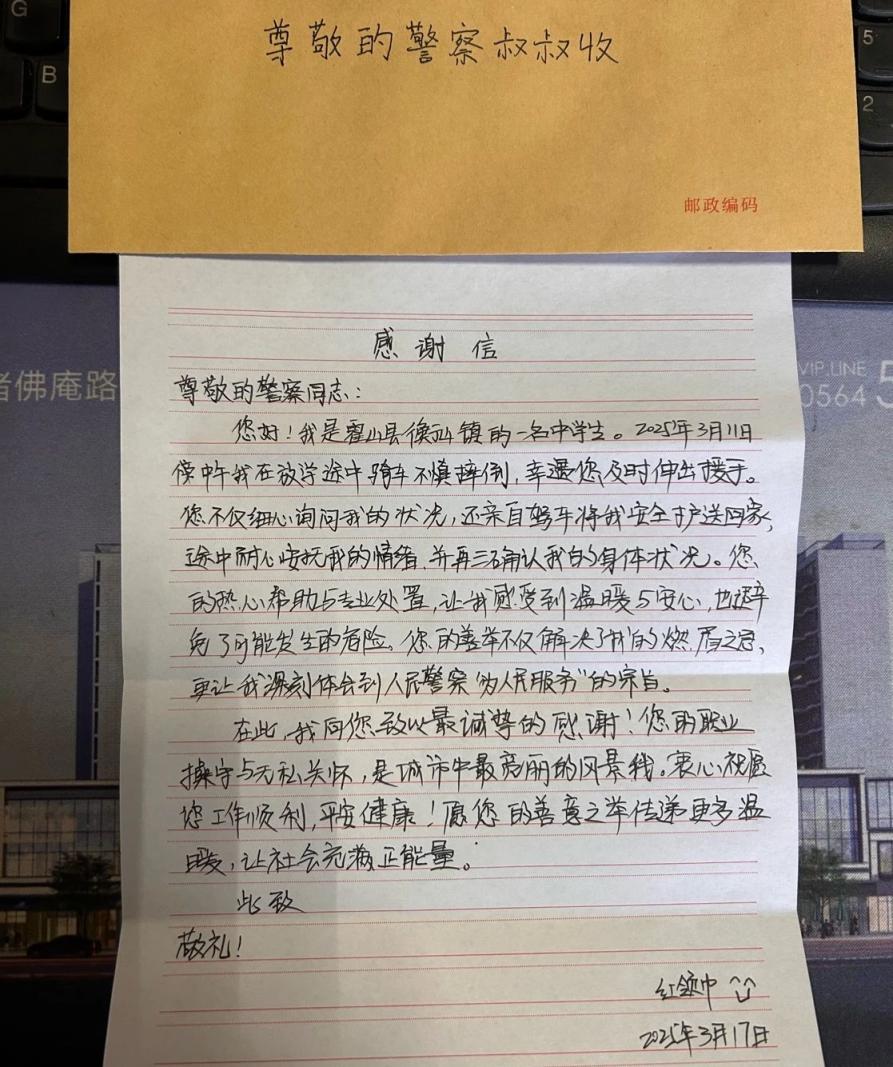 G
B
5
2
尊敬的警察叔叔收
邮政编码
者佛庵路
VIP.LINE
0564 5
感谢信
尊敬的警察同志：
您好！我是霍山县衡山镇的一名中学生。2025年3月11日
傍中午我在放学途中骑车不慎摔倒，幸遇您及时伸出援手。
您不仅细心询问我的状况，还亲自驾车将我安全护送回家，
途中耐心安抚我的情绪，并再三确认我的身体状况。您
的热心帮助与专业处置，让我感受到温暖与安心，也避
免了可能发生的危险。您的善举不仅解决了我的燃眉之急，
更让我深刻体会到人民警察“为人民服务”的宗旨。
在此，我向您致以最诚挚的感谢！您的职业
操守与无私关怀，是城市中最亮丽的风景线。衷心祝愿
您工作顺利，平安健康！愿您的善意之举传递更多温
暖，让社会充满正能量。
此致
敬礼！
红领巾
2025年3月17日